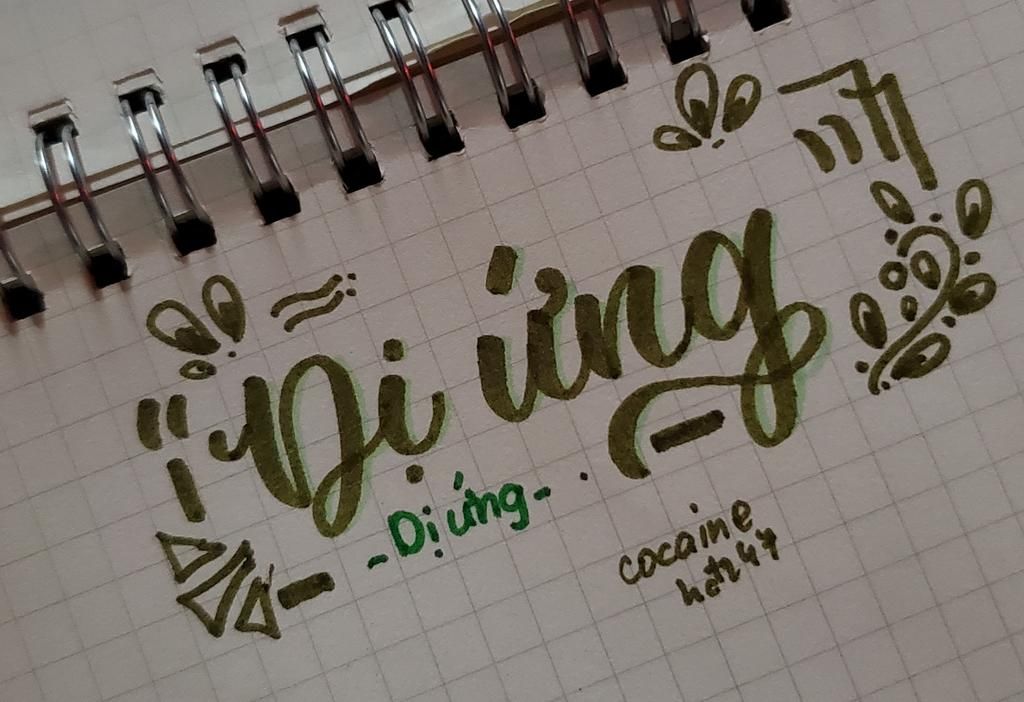 Dị ứng
- Dị ứng -
cocaine